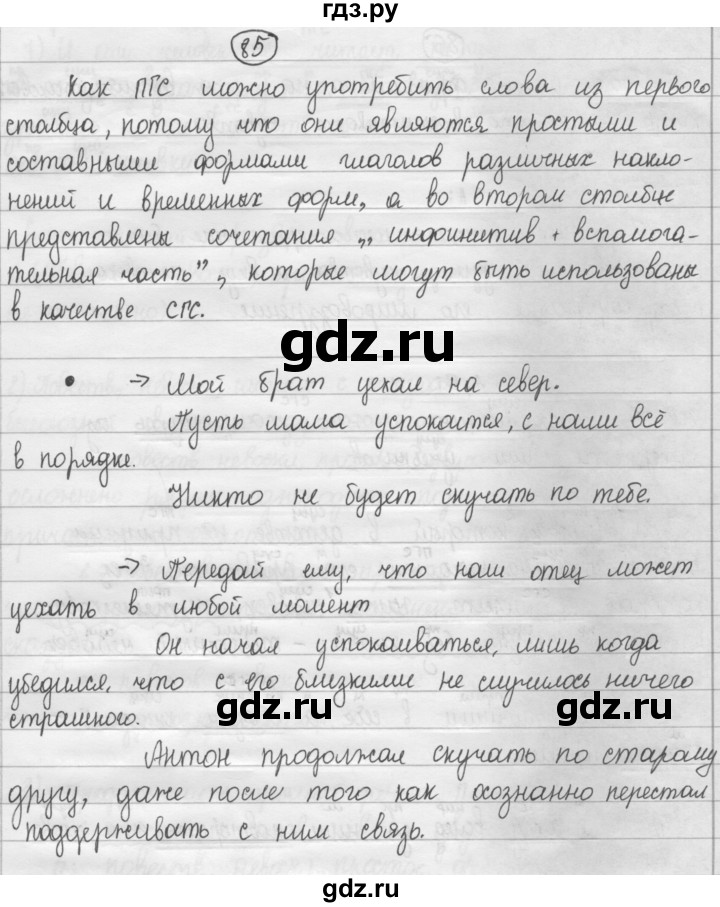 гдз.ру
85
Как ПГС можно употребить слова из первого
столбца, потому что они являются простыми и
составными формами глаголов различных накло-
нений и временных форм, а во втором столбце
представлены сочетания „инфинитив + вспомога-
тельная часть”, которые могут быть использованы
в качестве СГС.
gdz.ru
• → Мой брат уехал на север.
Пусть мама успокоится, с нами всё
в порядке.
Никто не будет скучать по тебе.
→ Передай ему, что наш отец может
уехать в любой момент
Он начал – успокаиваться, лишь когда
убедился, что с его близкими не случилось ничего
страшного.
gdz.ru gdz.ru
Антон продолжал скучать по старому
другу, даже после того как осознанно перестал
поддерживать с ним связь.
gdz.ru